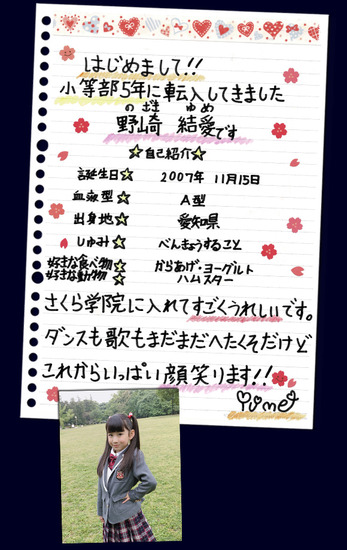 はじめまして!!
小等部5年に転入してきました
のざき ゆめ
野崎 結愛です
☆自己紹介☆
誕生日☆ 2007年 11月15日
血液型☆ A型
出身地☆ 愛知県
しゅみ☆ べんきょうすること
好きな食べ物☆ からあげ・ヨーグルト
好きな動物☆ ハムスター
さくら学院に入れてすごくうれしいです。
ダンスも歌もまだまだへたくそだけど
これからいっぱい顔笑ります!!
Yume